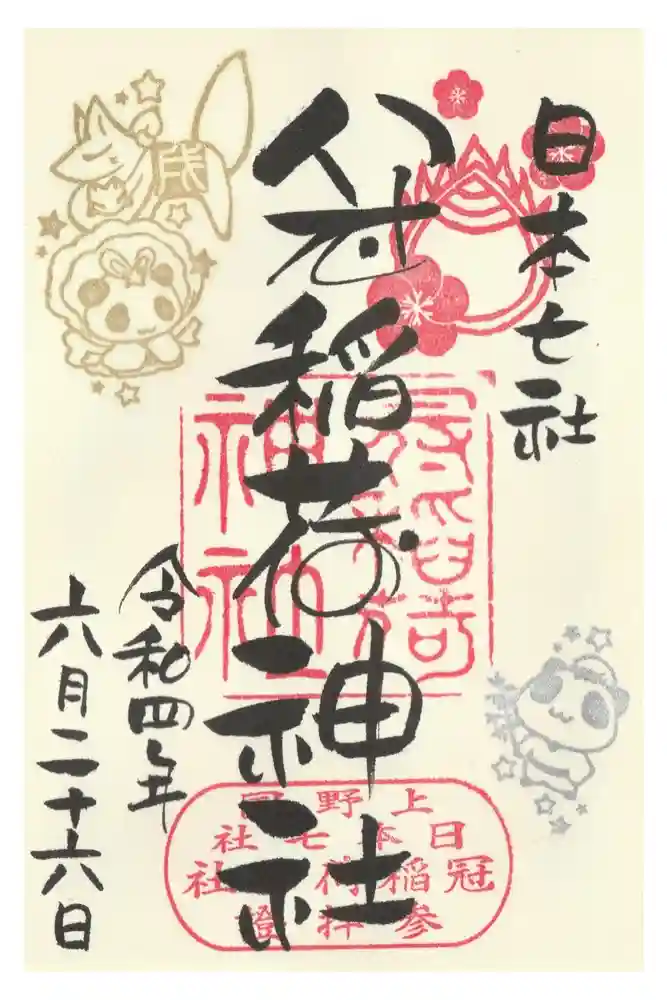 日本七社
冠稲荷神社
令和四年
六月二十六日
戌
冠稲荷
神社
上野国
日本七社
冠稲荷神社
参拝證